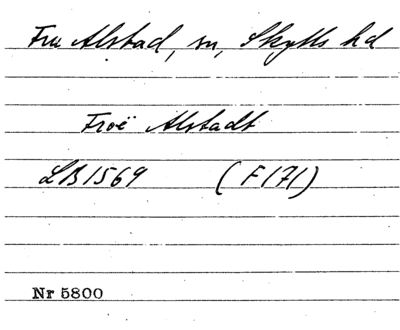 Fru Alstad, sn, Skytts hd
Froë Alstadt
LB 1569 (F 171)
Nr 5800